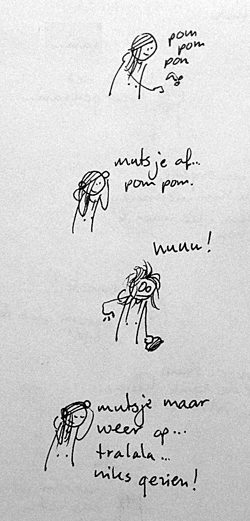 pom
pom
pom
mutsje af...
pom pom.
nuuu!
mutsje maar
weer op...
tralala...
niks gezien!